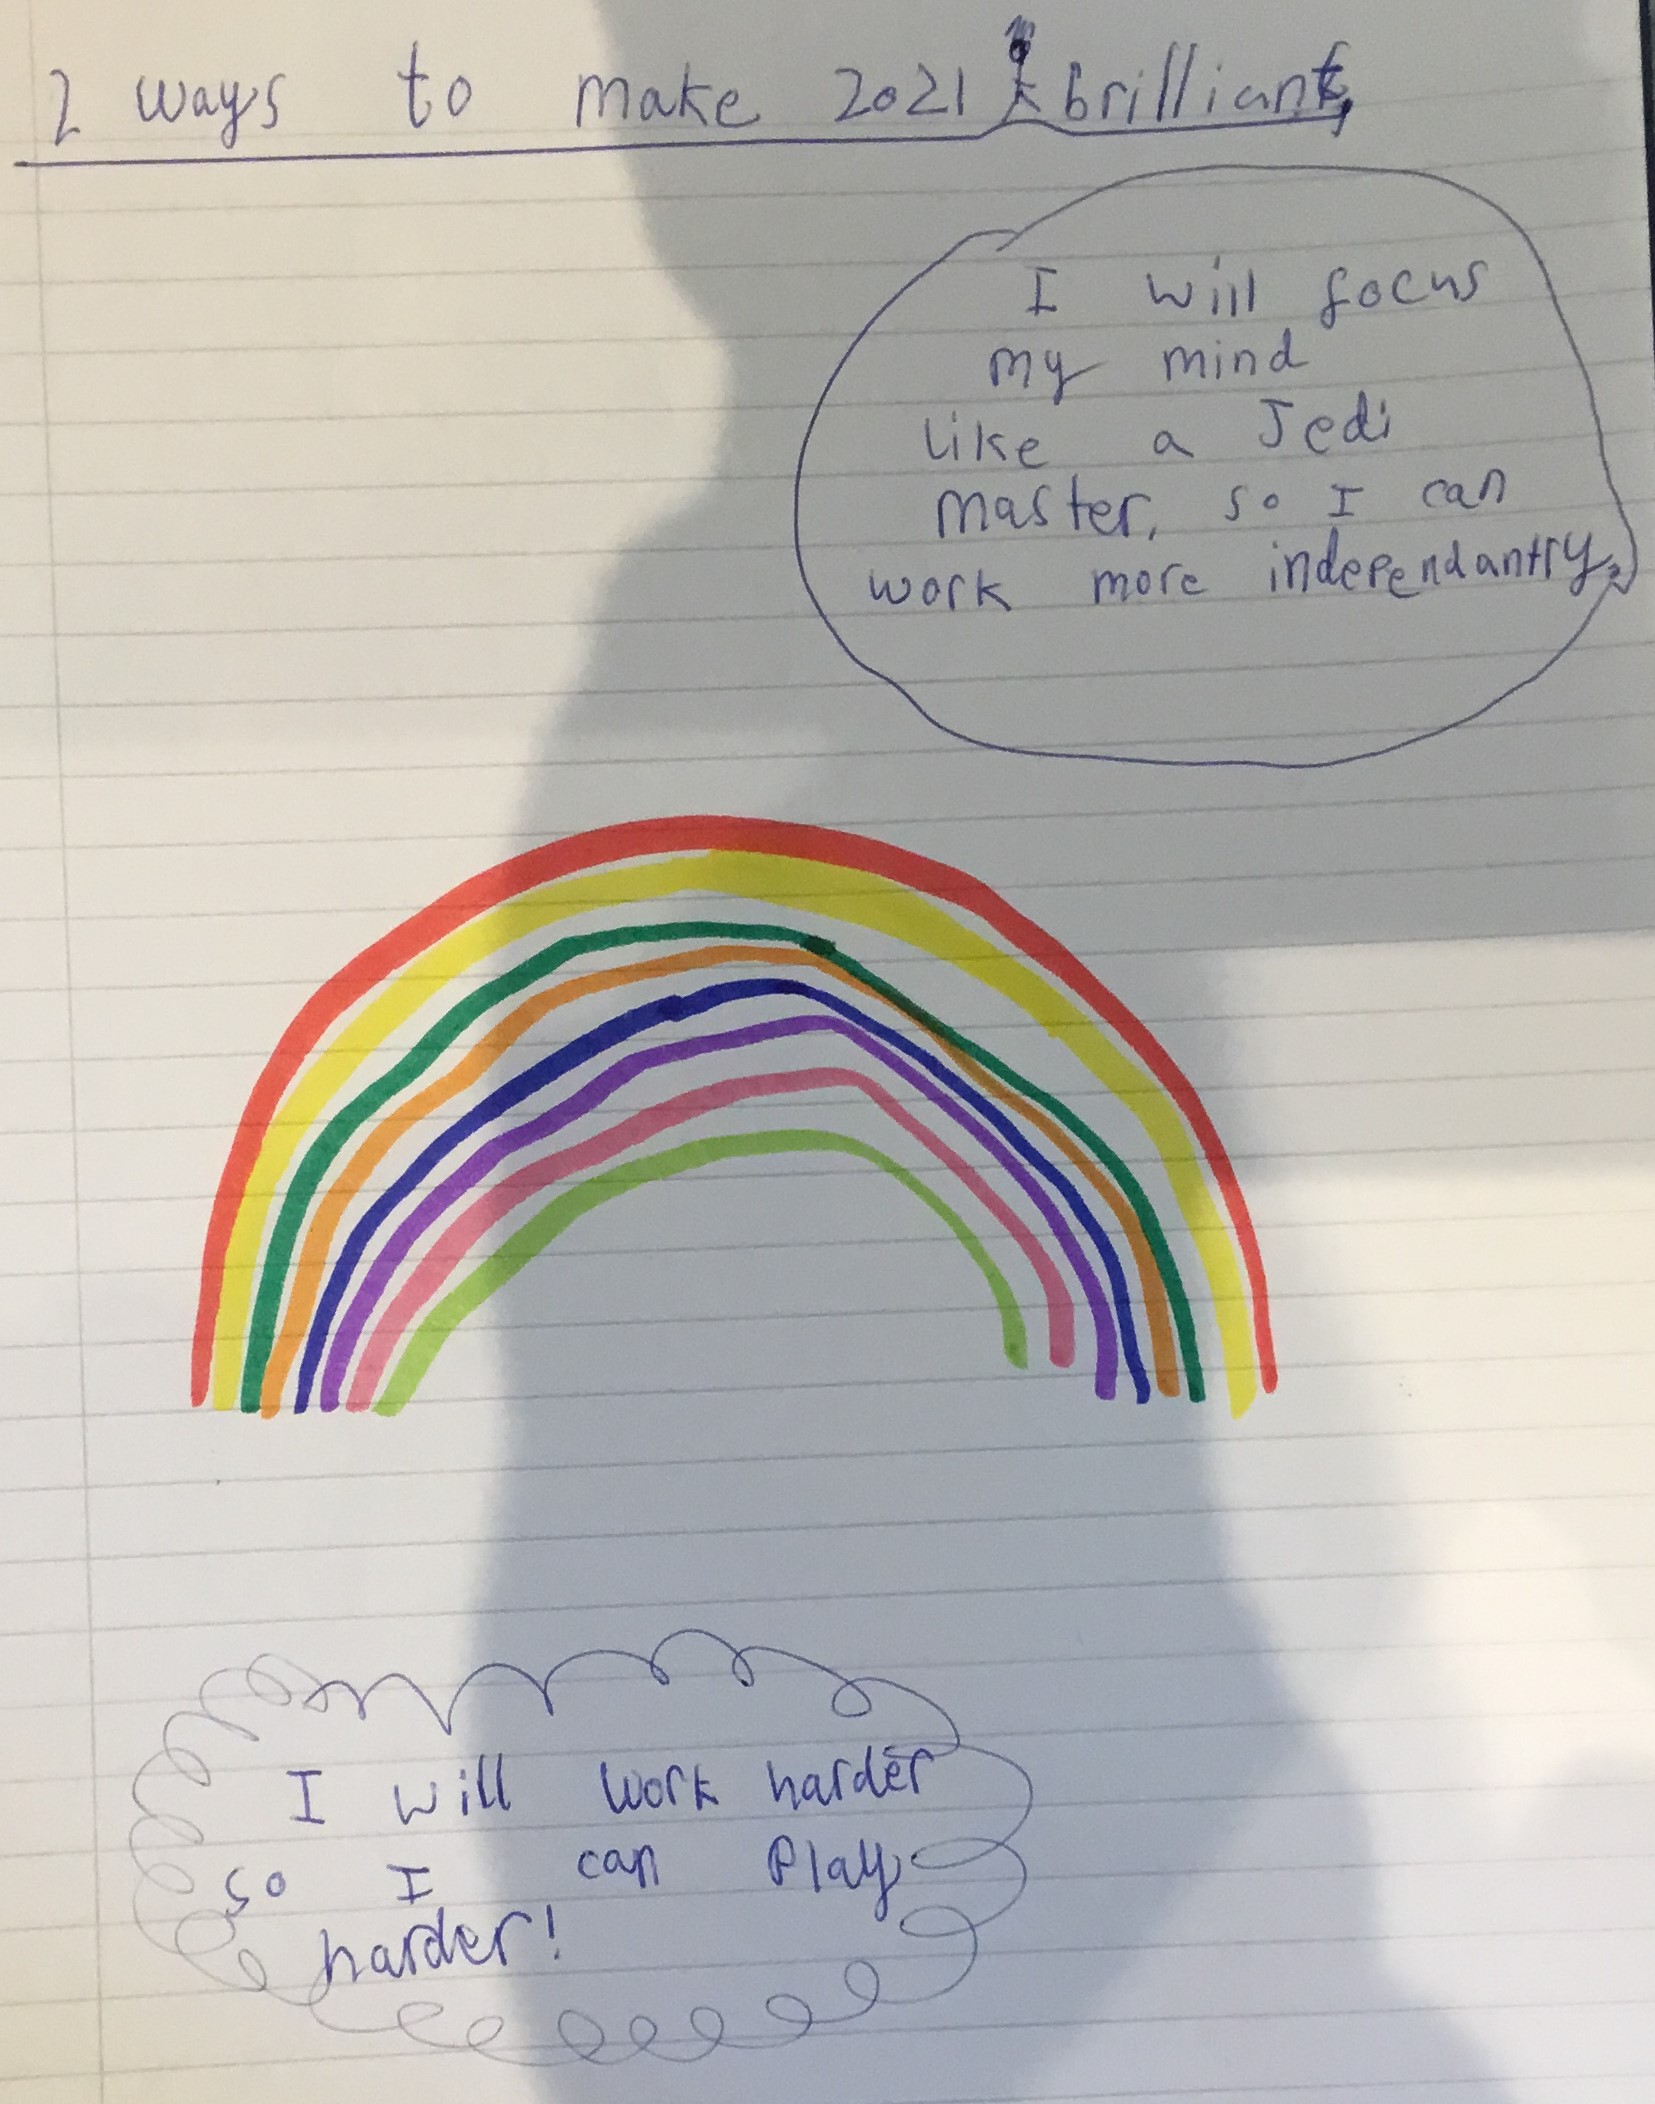 2 ways to make 2021 brilliant
I will focus
my mind
like a Jedi
master, so I can
work more independantly.
I will work harder
so I can Play
harder!